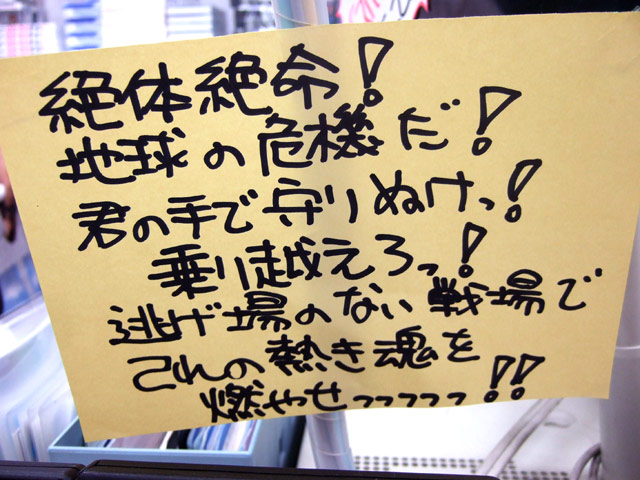 絶体絶命!
地球の危機だ!
君の手で守りぬけっ!
乗り越えろっ!
逃げ場のない戦場で
これの熱き魂を
燃やせっっっっっ!!